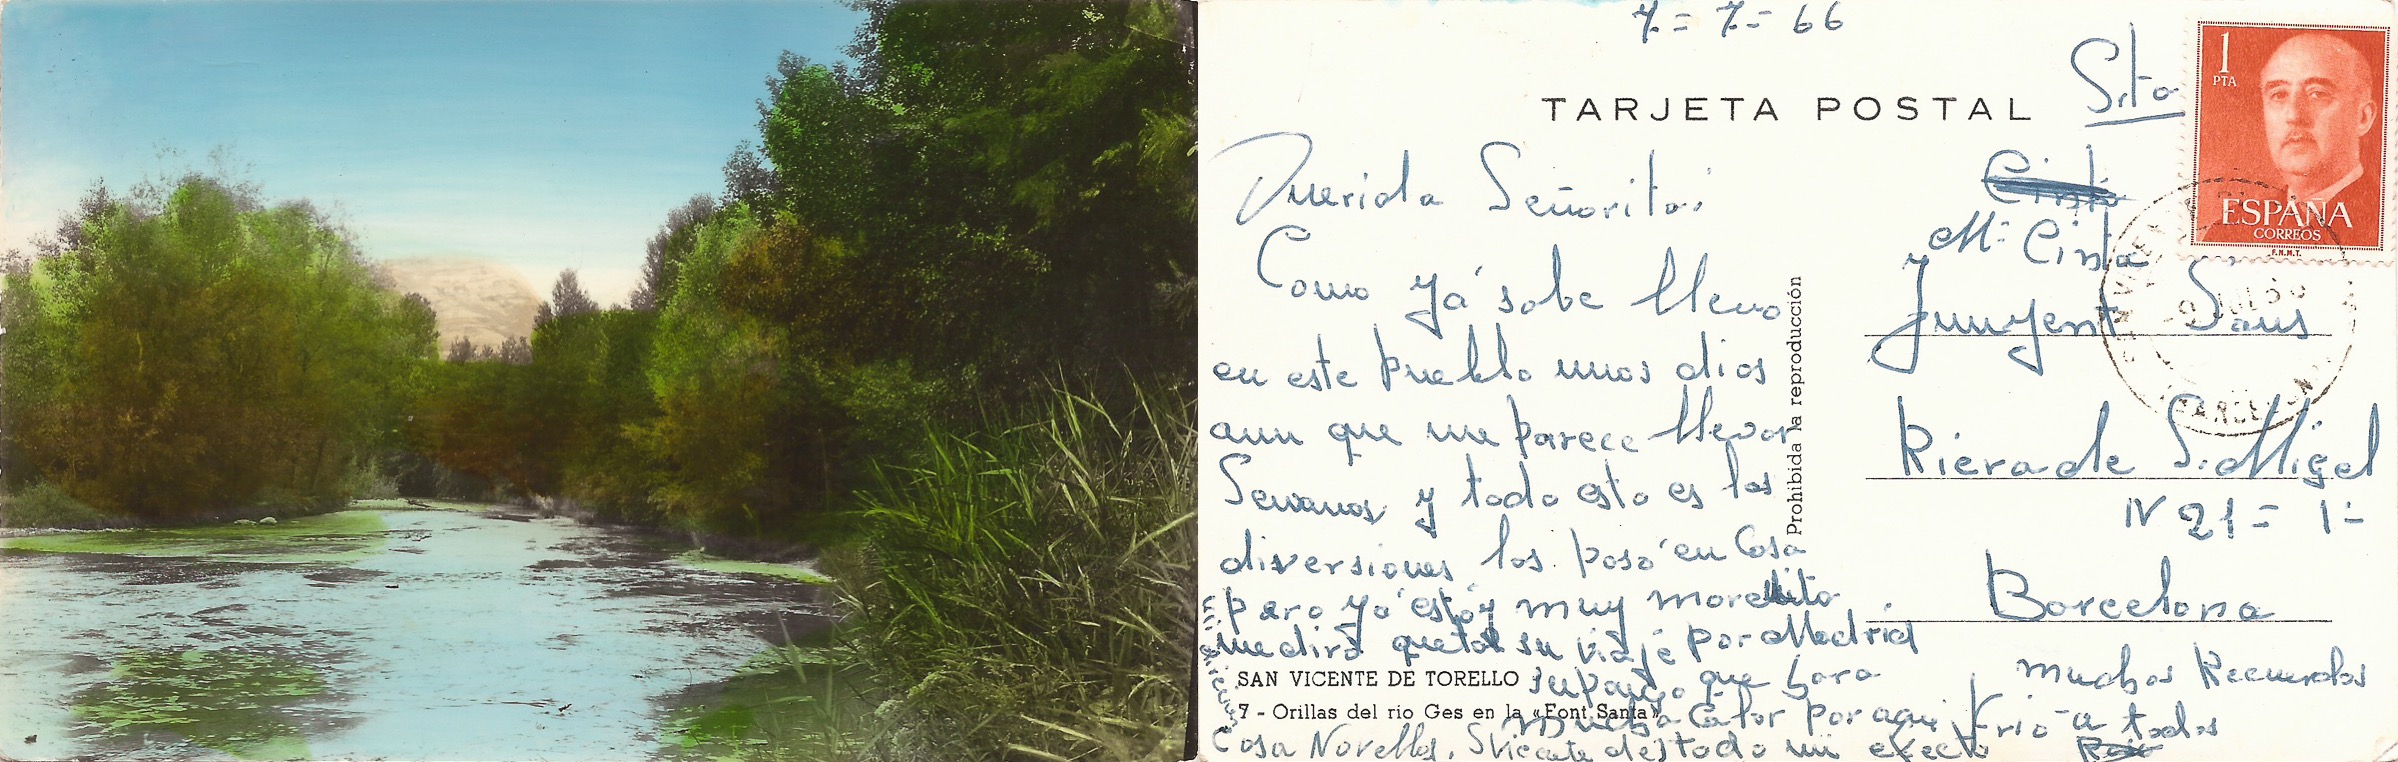 7 = 7 = 66
TARJETA POSTAL
Srta
1
PTA
ESPAÑA
CORREOS
F.N.M.T.
Querida Señorita:
Como ya sabe llevo
en este pueblo unos dias
aun que me parece llevar
Semanas y todo esto es las
diversiones las paso en Casa
pero ya estoy muy morenito
me dirá que tal su viaje por Madrid
supongo que hara
mucho Calor por aqui frio
Casa Novellas, S Vicente
SAN VICENTE DE TORELLO
7 - Orillas del rio Ges en la «Font Santa»
Prohibida la reproducción
Mª Cinta
Junyent Sans
Riera de S. Migel
Nº 21 = 1º
Barcelona
muchos Recuerdos
a todos